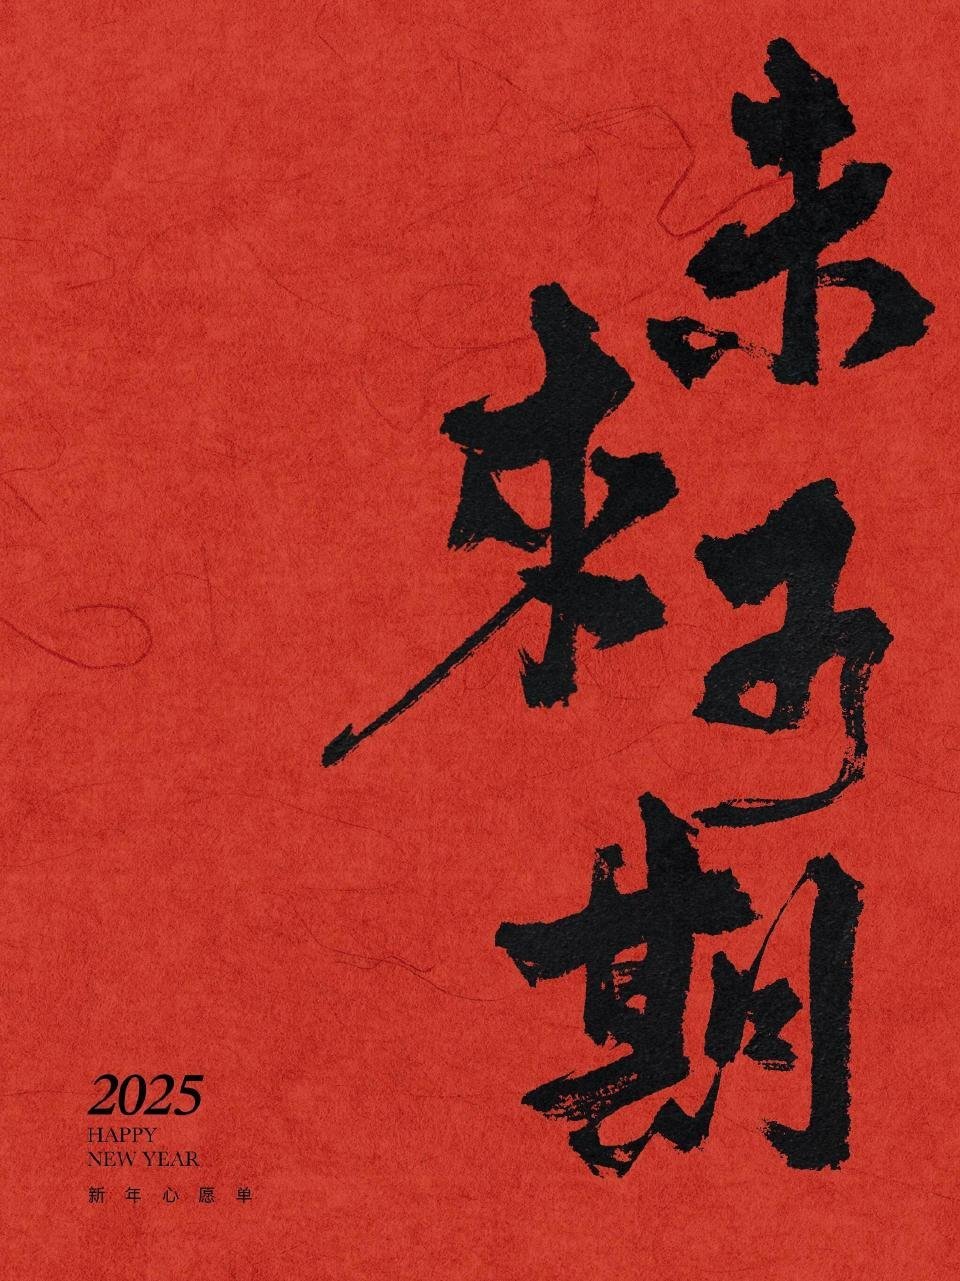 未
來
可
期
2025
HAPPY
NEW YEAR
新年心愿单